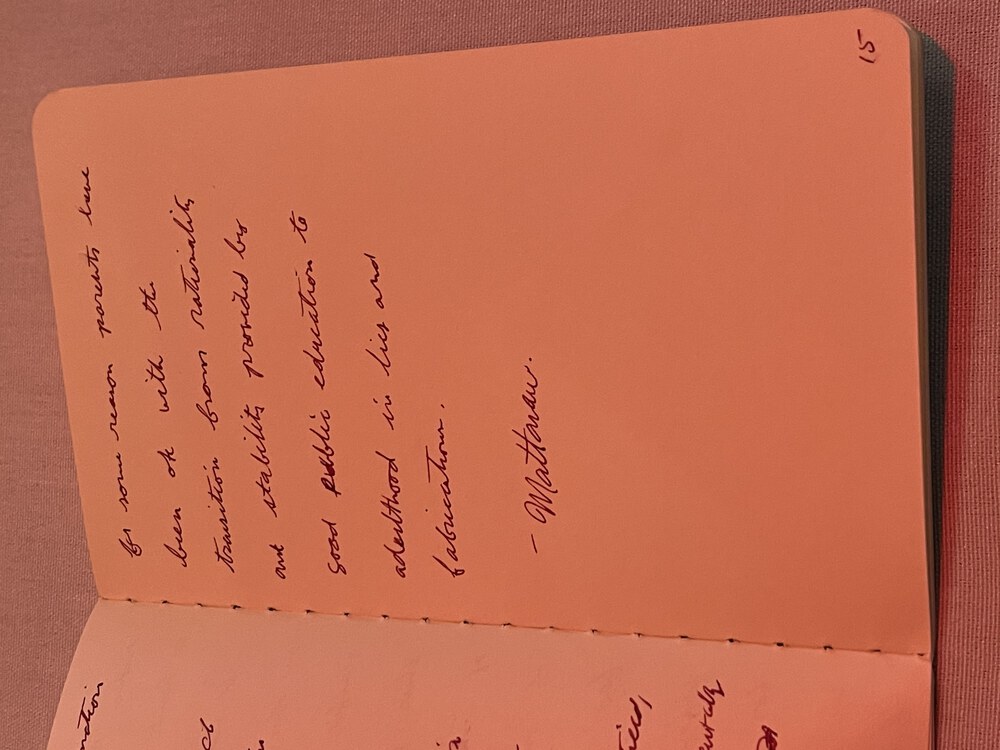 for some reason parents have
been ok with the
transition from rationality
and stability provided by
good public education to
adulthood in lies and
fabrications.
— Mattanaw.
15